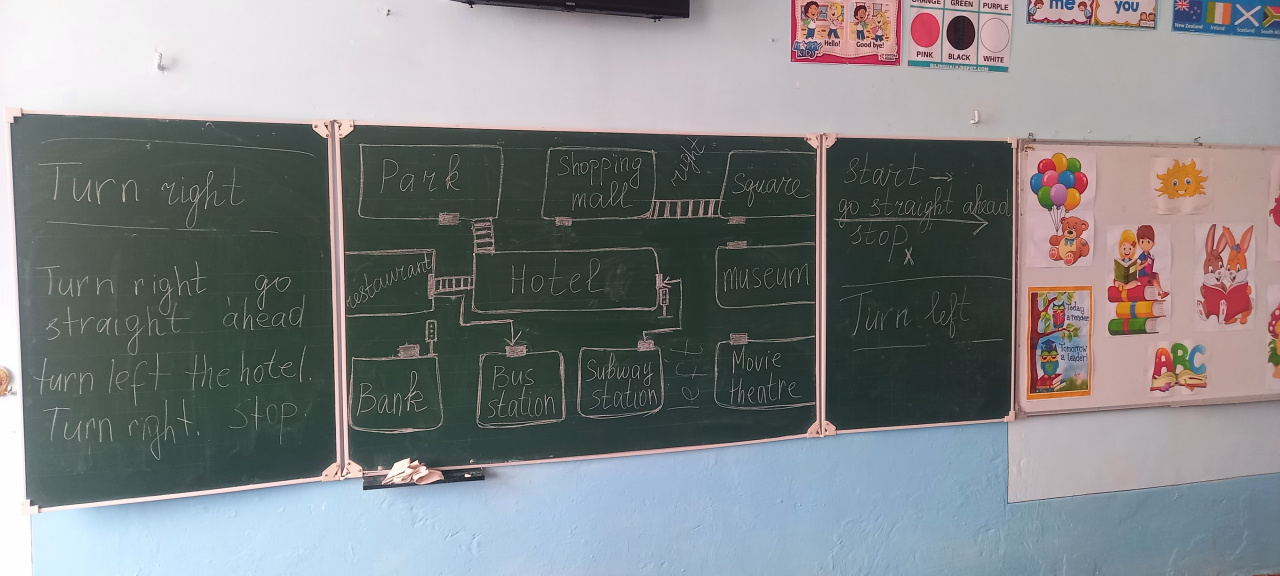 ORANGE GREEN PURPLE
Hello! Good bye!
PINK BLACK WHITE
me
you
New Zealand Ireland Scotland
Turn right
Turn right go
straight ahead
turn left the hotel.
Turn right. Stop.
Park
Shopping
mall
right
Square
restaurant
Hotel
museum
Bank
Bus
station
Subway
station
Movie
theatre
start →
go straight ahead
stop x
Turn left
Today
a reader
Tomorrow
a leader!
ABC